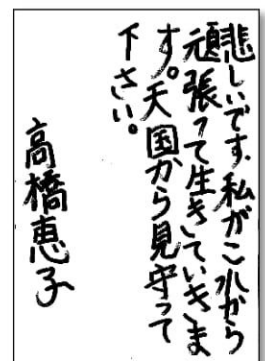 悲しいです。私がこれから
頑張って生きていきま
す。天国から見守って
下さい。
高橋恵子